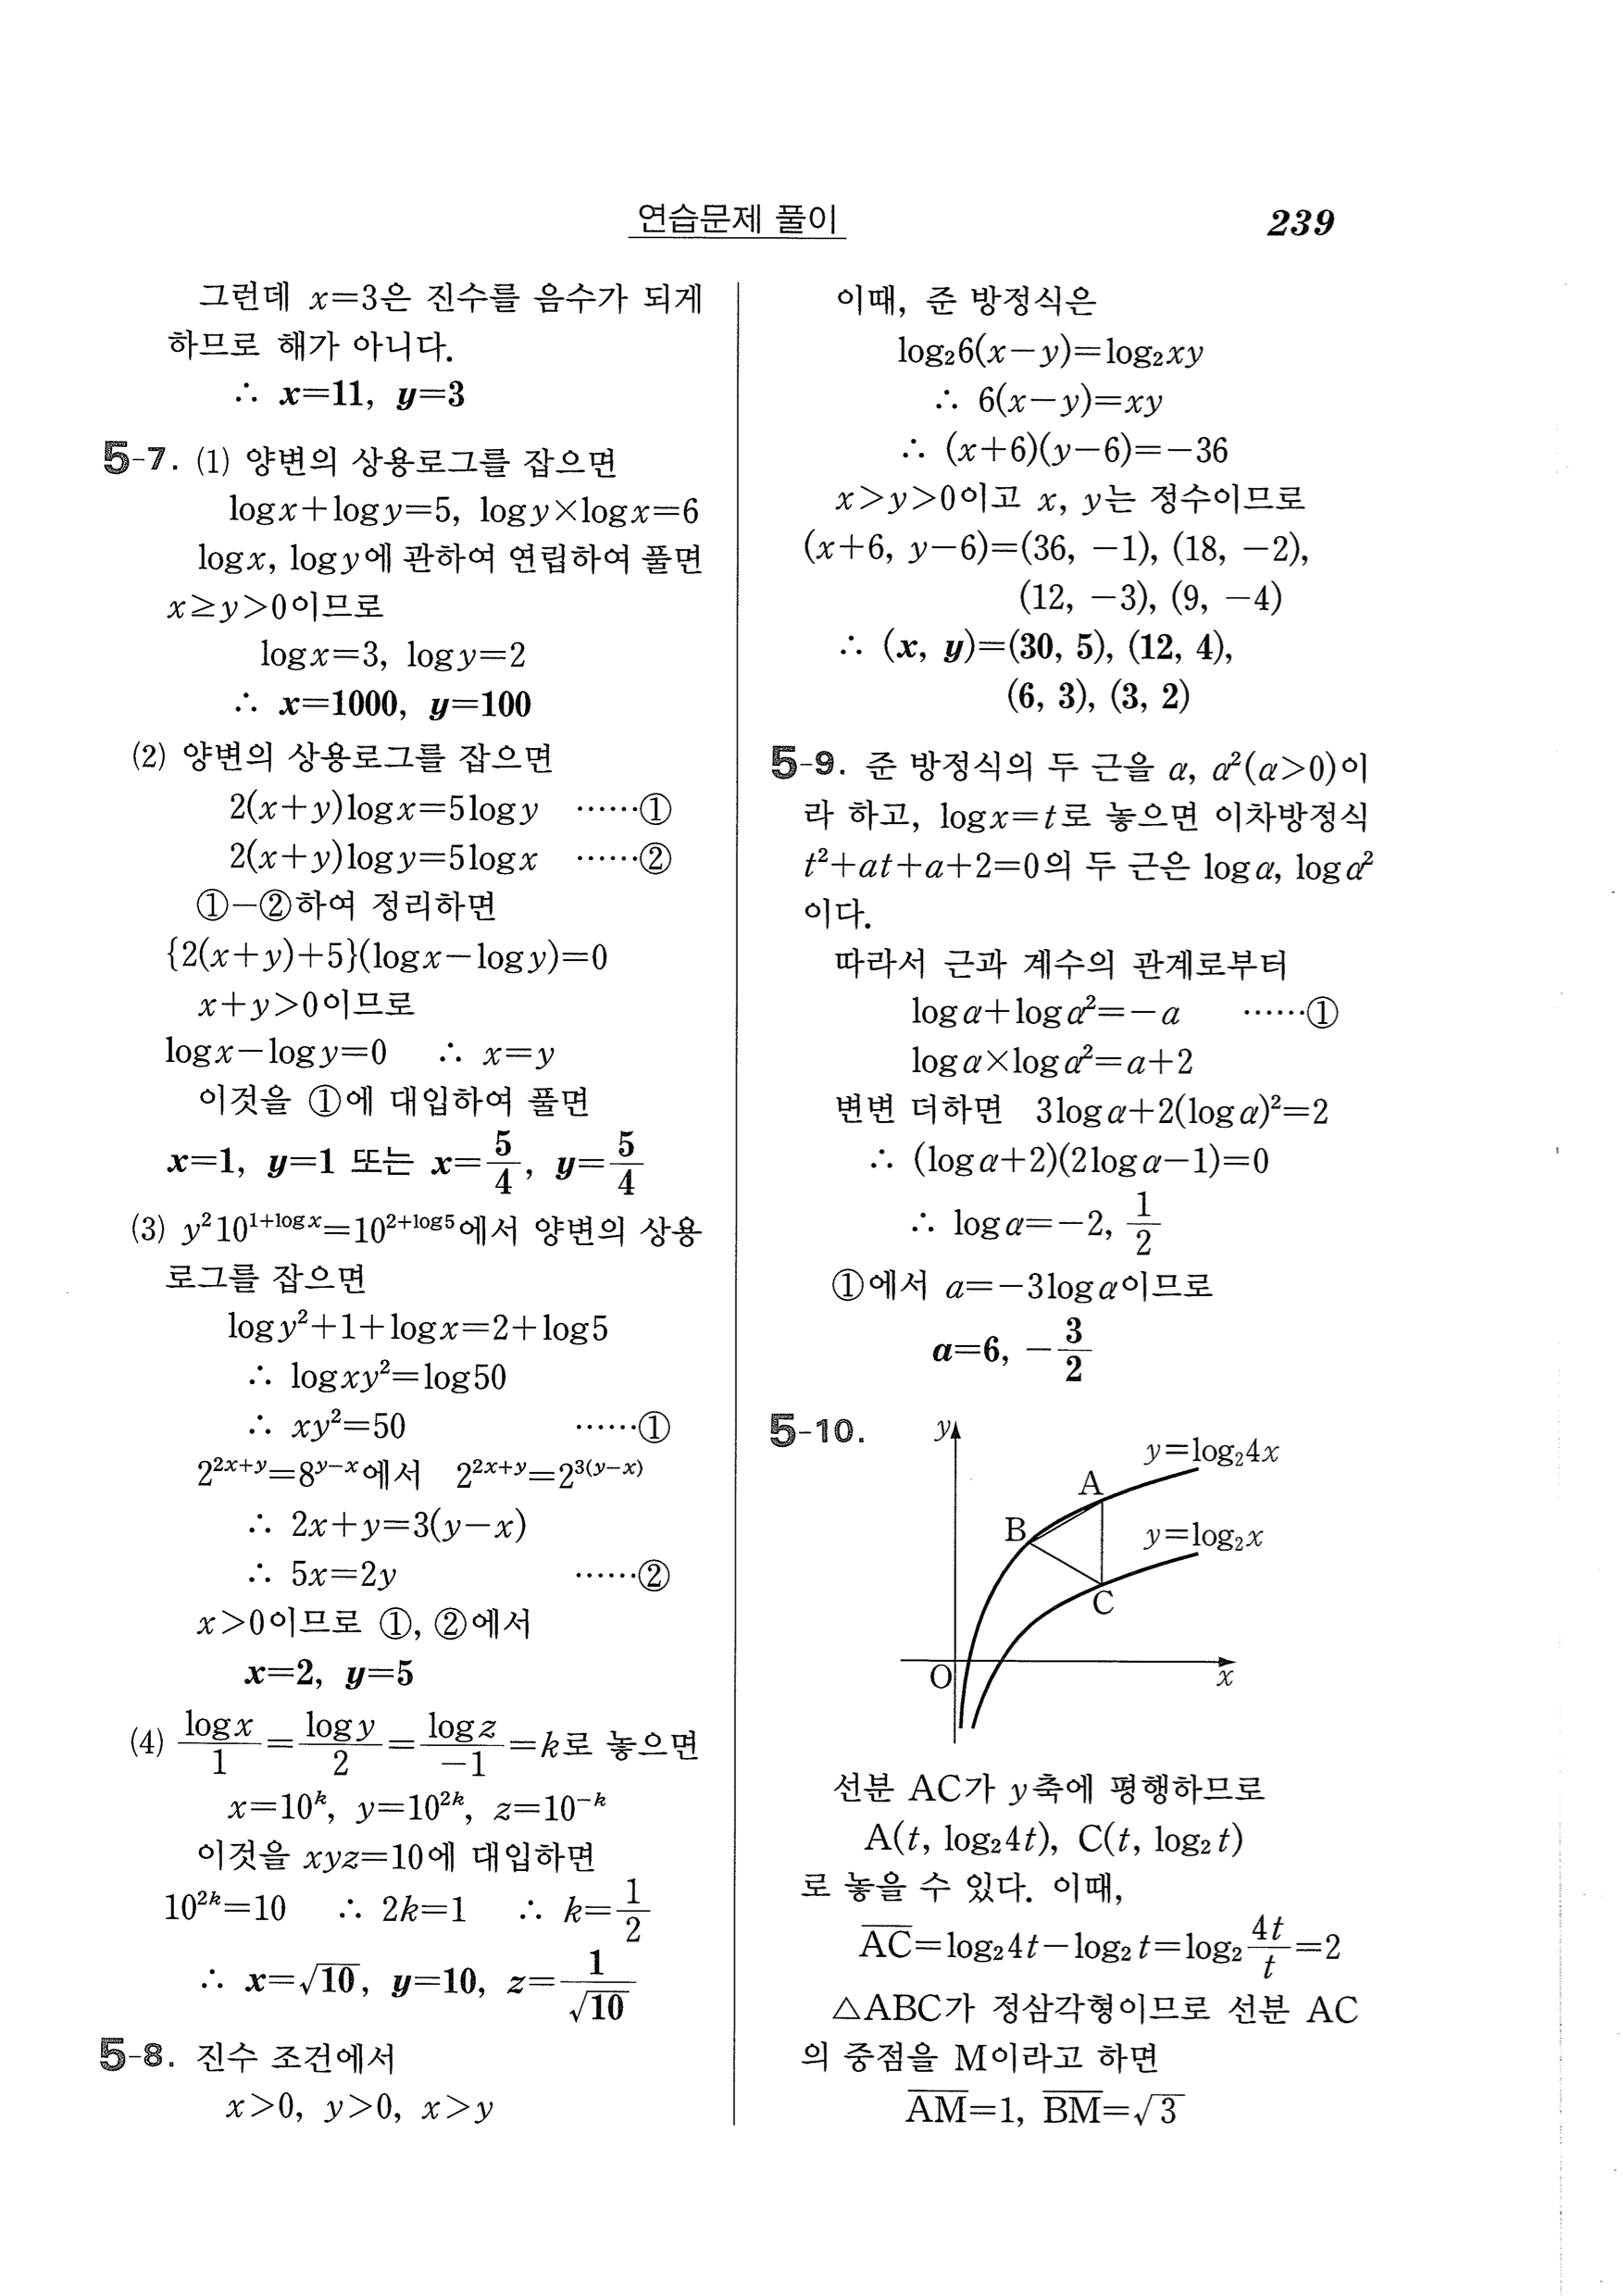 연습문제 풀이
239
그런데 x=3은 진수를 음수가 되게
하므로 해가 아니다.
∴ x=11, y=3
5-7. (1) 양변의 상용로그를 잡으면
logx+logy=5, logy×logx=6
logx, logy에 관하여 연립하여 풀면
x≥y>0이므로
logx=3, logy=2
∴ x=1000, y=100
(2) 양변의 상용로그를 잡으면
2(x+y)logx=5logy ……①
2(x+y)logy=5logx ……②
①-②하여 정리하면
{2(x+y)+5}(logx-logy)=0
x+y>0이므로
logx-logy=0 ∴ x=y
이것을 ①에 대입하여 풀면
x=1, y=1 또는 x=5/4, y=5/4
(3) y²10^(1+logx)=10^(2+log5)에서 양변의 상용
로그를 잡으면
logy²+1+logx=2+log5
∴ logxy²=log50
∴ xy²=50 ……①
2^(2x+y)=8^(y-x)에서 2^(2x+y)=2^(3(y-x))
∴ 2x+y=3(y-x)
∴ 5x=2y ……②
x>0이므로 ①, ②에서
x=2, y=5
(4) logx/1=logy/2=logz/-1=k로 놓으면
x=10^k, y=10^(2k), z=10^(-k)
이것을 xyz=10에 대입하면
10^(2k)=10 ∴ 2k=1 ∴ k=1/2
∴ x=√10, y=10, z=1/√10
5-8. 진수 조건에서
x>0, y>0, x>y
이때, 준 방정식은
log₂6(x-y)=log₂xy
∴ 6(x-y)=xy
∴ (x+6)(y-6)=-36
x>y>0이고 x, y는 정수이므로
(x+6, y-6)=(36, -1), (18, -2),
(12, -3), (9, -4)
∴ (x, y)=(30, 5), (12, 4),
(6, 3), (3, 2)
5-9. 준 방정식의 두 근을 α, α²(α>0)이
라 하고, logx=t로 놓으면 이차방정식
t²+at+a+2=0의 두 근은 logα, logα²
이다.
따라서 근과 계수의 관계로부터
logα+logα²=-a ……①
logα×logα²=a+2
변변 더하면 3logα+2(logα)²=2
∴ (logα+2)(2logα-1)=0
∴ logα=-2, 1/2
①에서 a=-3logα이므로
a=6, -3/2
5-10.
y
y=log₂4x
A
B
y=log₂x
C
O
x
선분 AC가 y축에 평행하므로
A(t, log₂4t), C(t, log₂t)
로 놓을 수 있다. 이때,
A̅C̅=log₂4t-log₂t=log₂4t/t=2
△ABC가 정삼각형이므로 선분 AC
의 중점을 M이라고 하면
A̅M̅=1, B̅M̅=√3